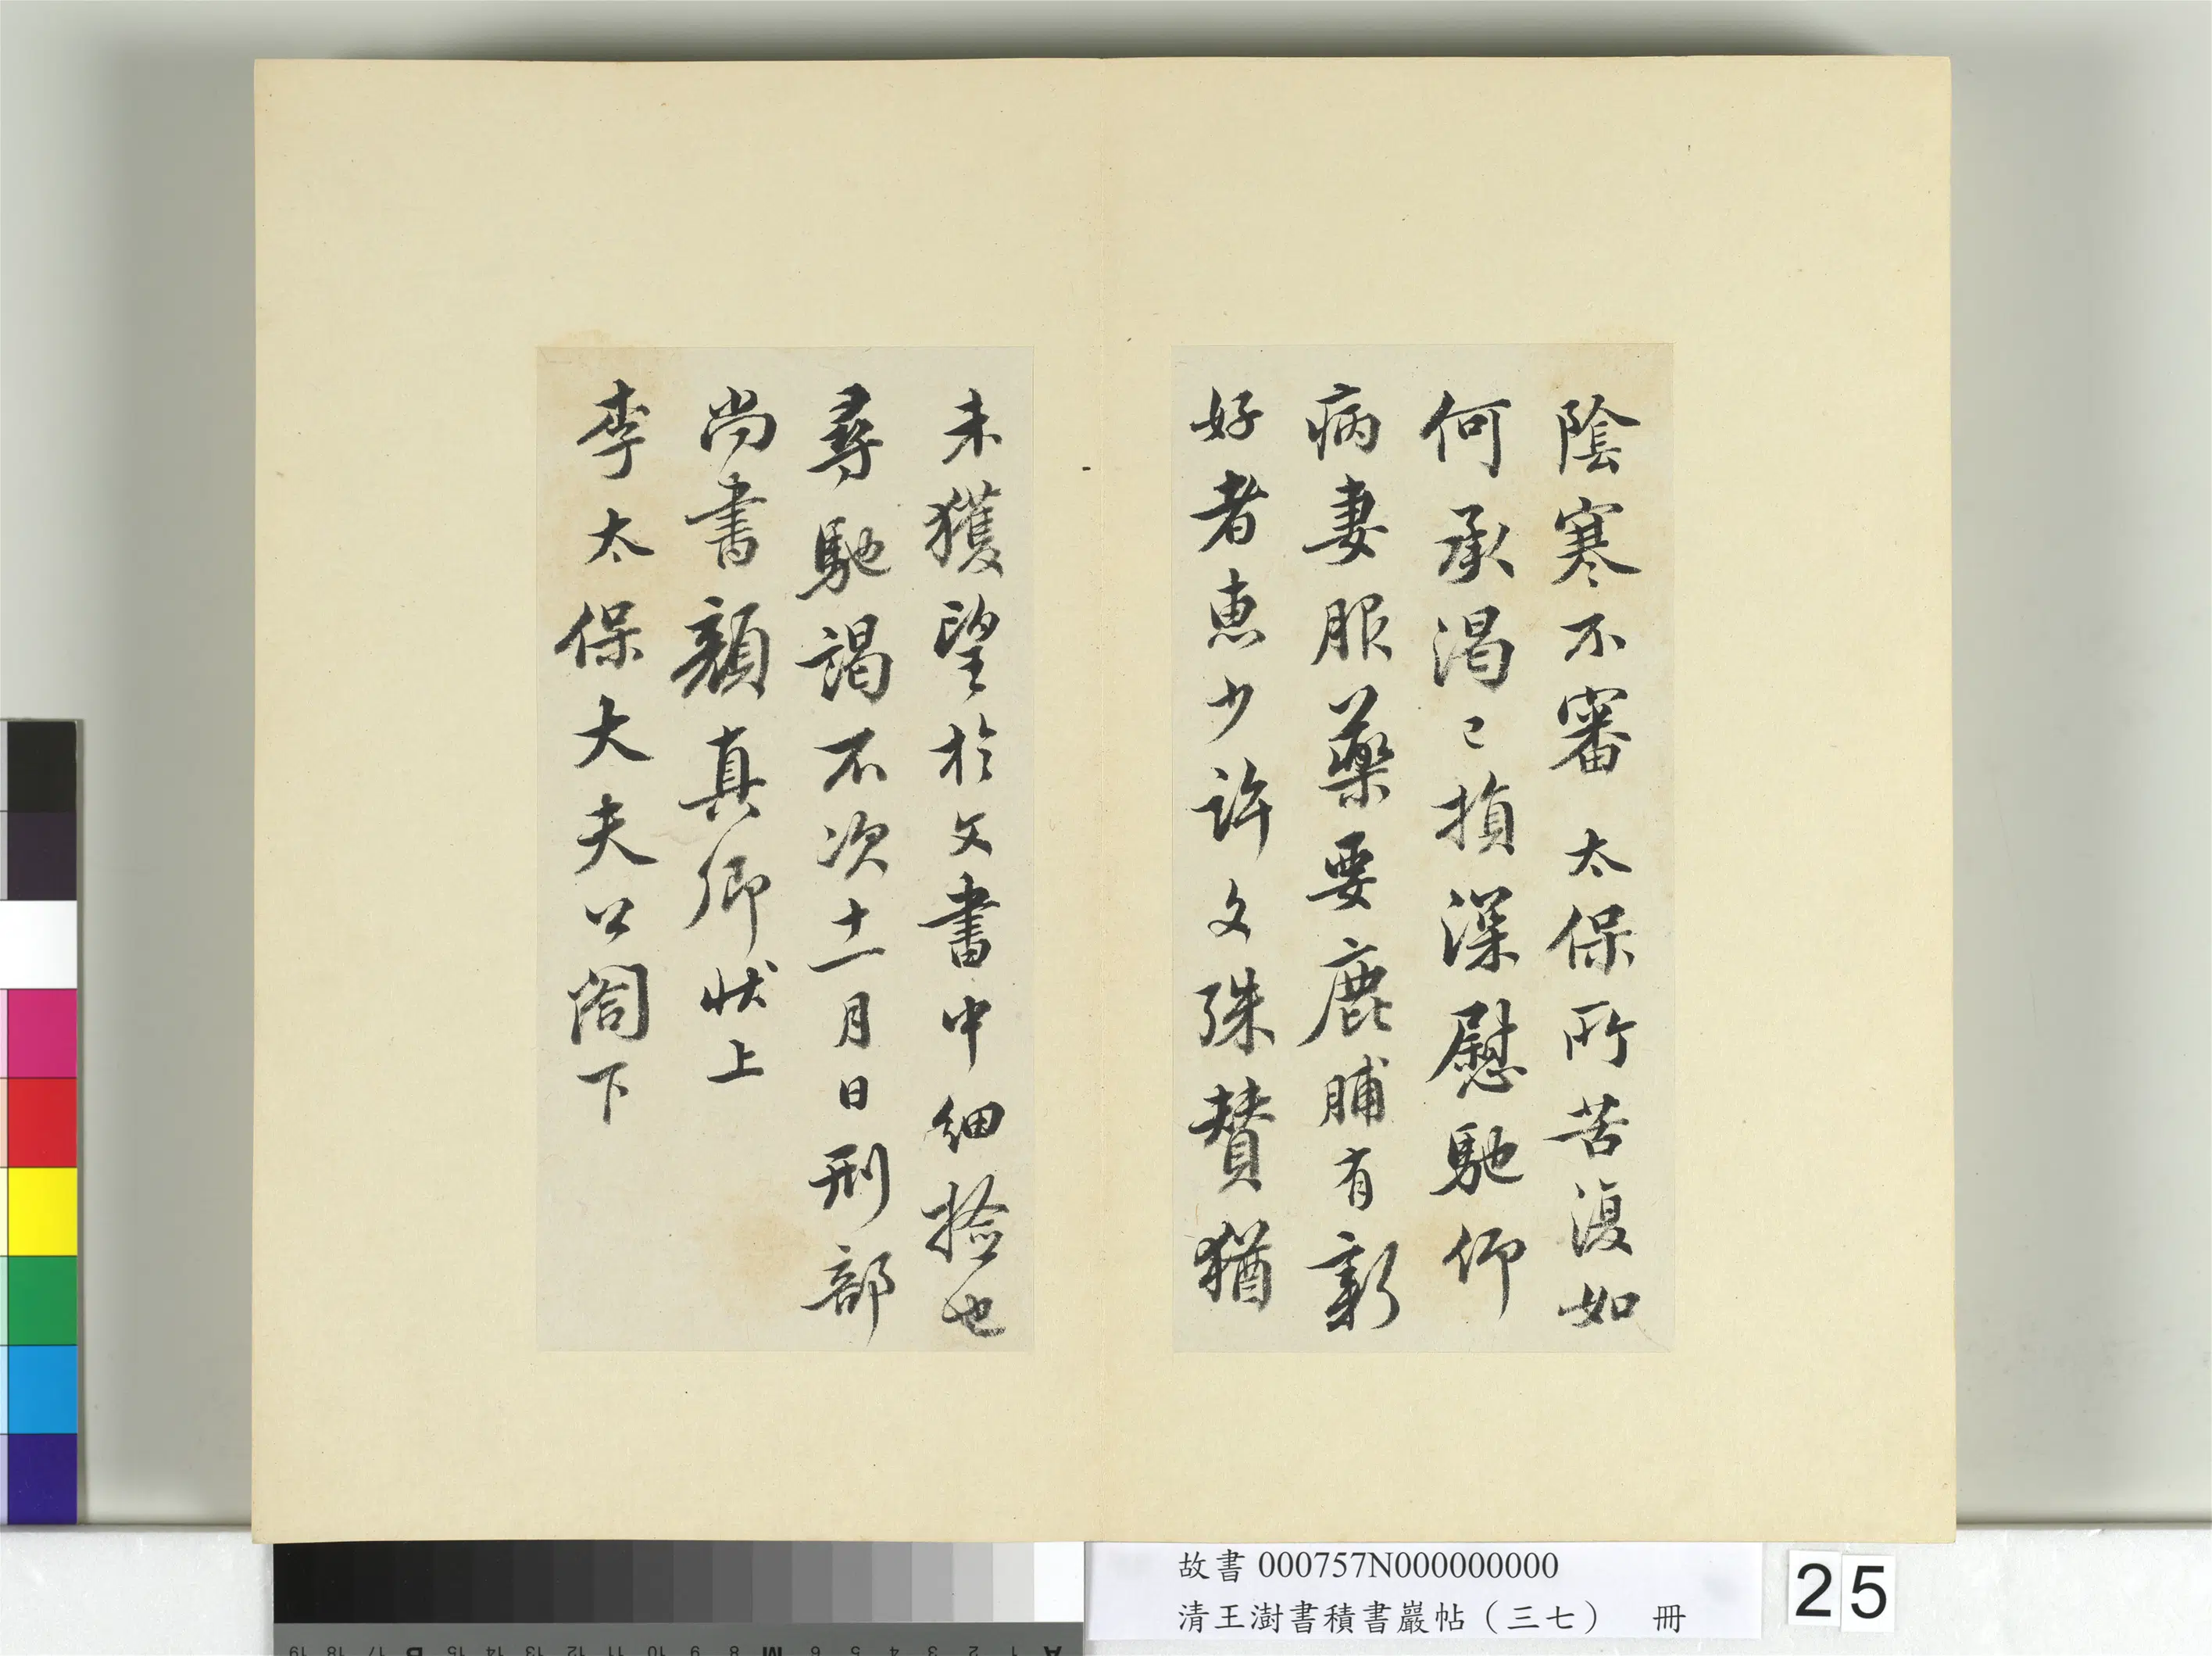 陰寒不審 太保所苦渡如
何承渴〻損深慰馳仰
病妻服藥要鹿脯有新
好者惠少許文殊賛猶
未獲望於文書中細撿也
尋馳謁不次十一月日刑部
尚書顏真卿狀上
李太保大夫公閤下
故書 000757N000000000
清王澍書積書巖帖（三七） 冊
25
A 1 2 3 4 5 6 M 8 9 10 11 12 13 14 15 B 17 18 19